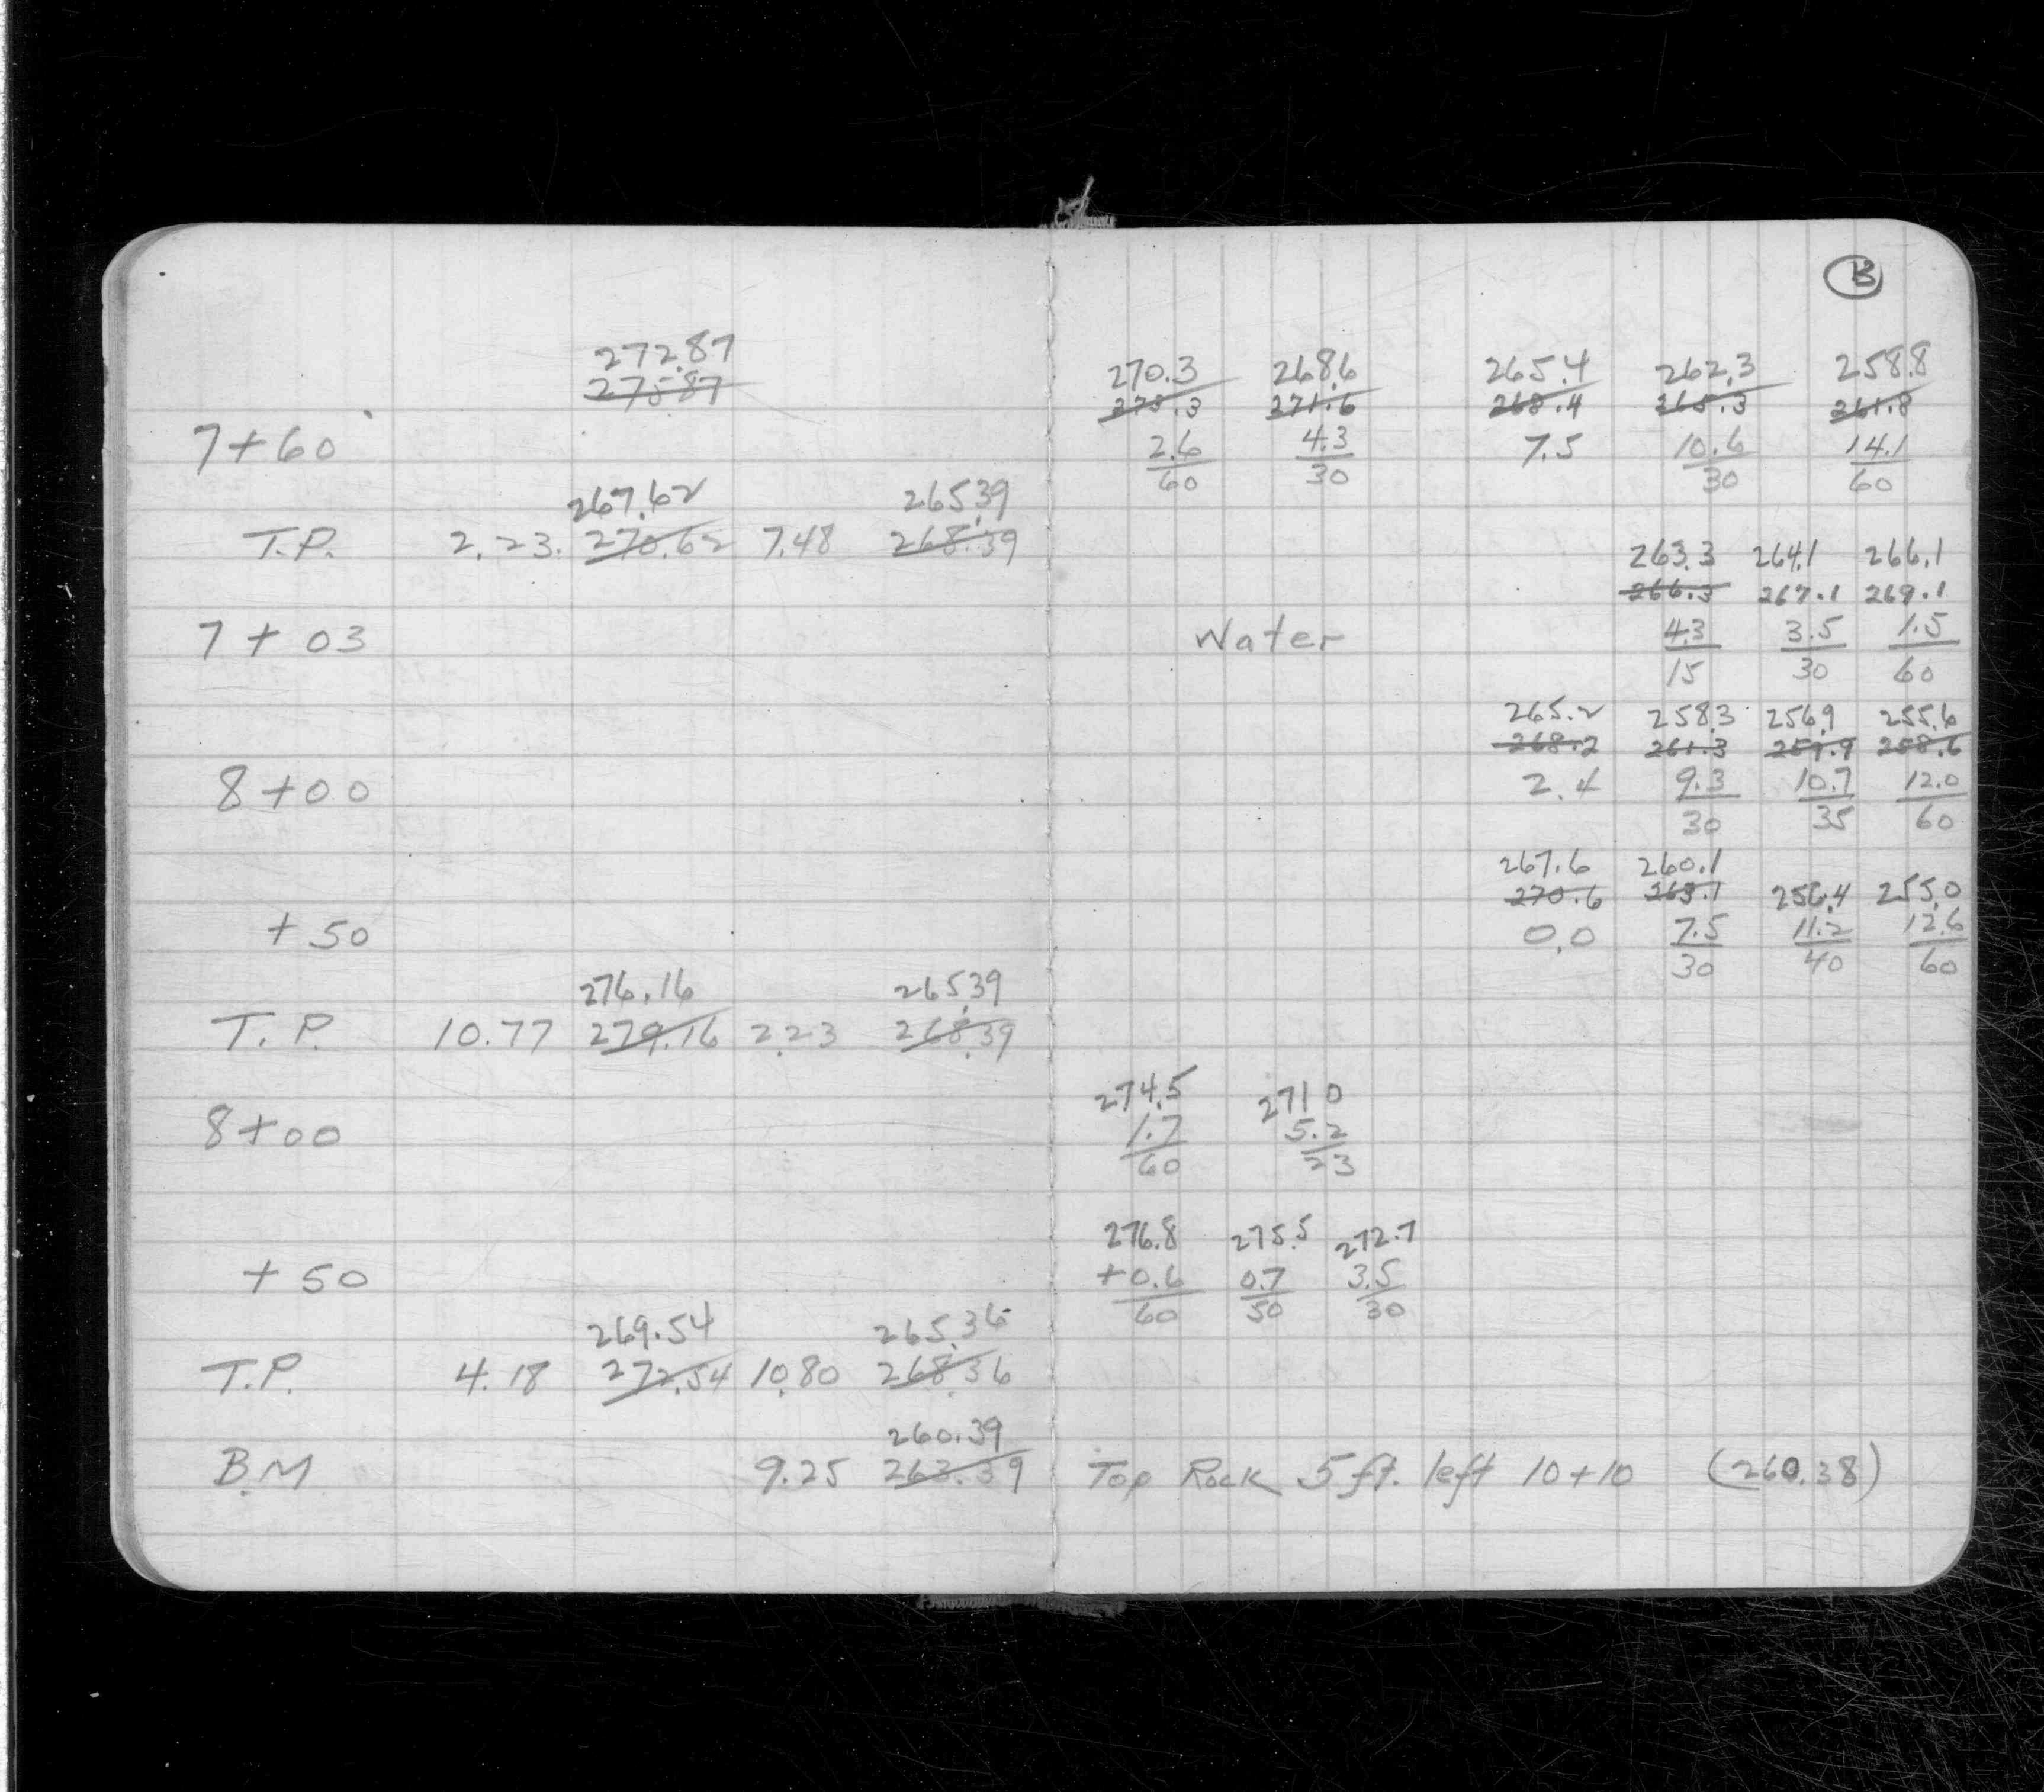 B
272.87 270.3 268.6 265.4 262.3 258.8
275.87 273.3 271.6 268.4 265.3 261.8
7+60 2.6 4.3 7.5 10.6 14.1
60 30 30 60
267.62 265.39
T.P. 2.23. 270.62 7.48 268.39
263.3 264.1 266.1
266.3 267.1 269.1
7+03 Water 4.3 3.5 1.5
15 30 60
265.2 258.3 256.9 255.6
268.2 261.3 259.9 258.6
8+00 2.4 9.3 10.7 12.0
30 35 60
267.6 260.1
270.6 263.1 256.4 255.0
+50 0.0 7.5 11.2 12.6
30 40 60
276.16 265.39
T.P. 10.77 279.16 2.23 268.39
274.5 271 0
8+00 1.7 5.2
60 23
276.8 275.5 272.7
+50 +0.6 0.7 3.5
60 50 30
269.54 265.36
T.P. 4.18 272.54 10.80 268.36
260.39
B.M 9.25 263.39 Top Rock 5 ft. left 10+10 (260.38)